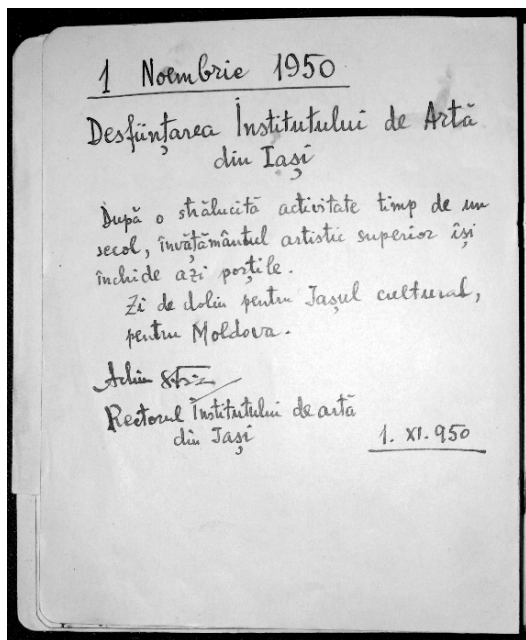 1 Noembrie 1950
Desființarea Institutului de Artă
din Iași
După o strălucită activitate timp de un
secol, învățământul artistic superior își
închide azi porțile.
Zi de doliu pentru Iașul cultural,
pentru Moldova.
Achim
Rectorul Institutului de artă
din Iași
1. XI. 950